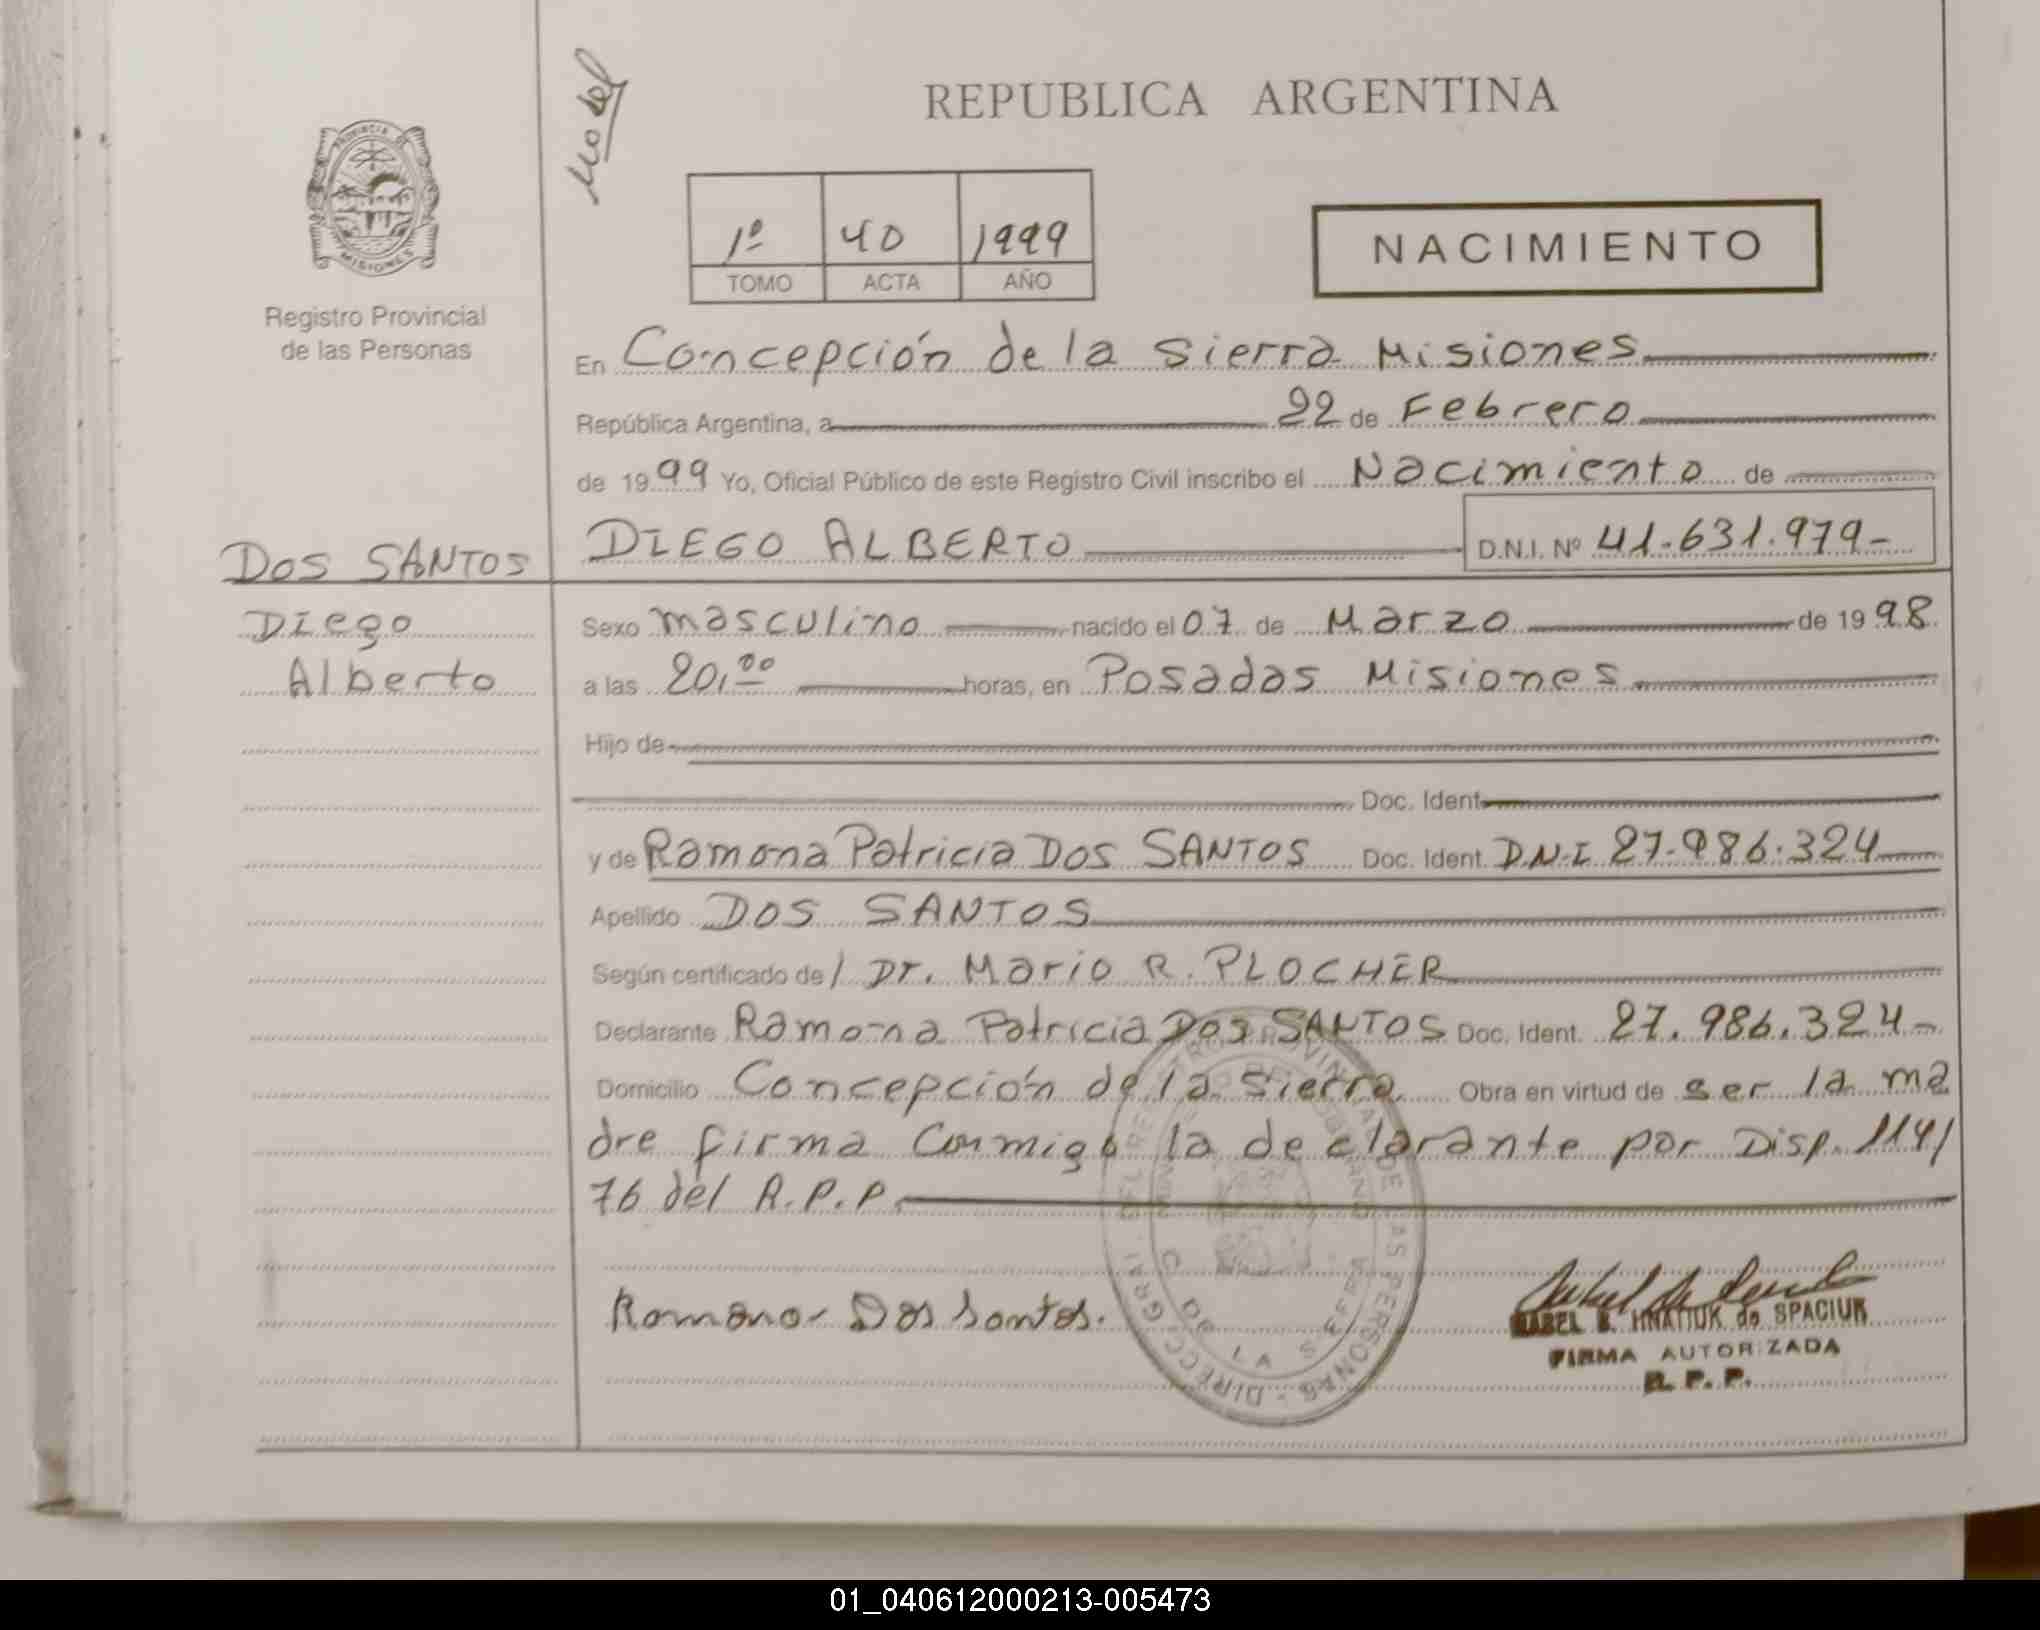 REPUBLICA ARGENTINA
PROVINCIA DE
MISIONES
Registro Provincial
de las Personas
1º 40 1999
TOMO ACTA AÑO
NACIMIENTO
En Concepción de la Sierra Misiones
República Argentina, a 22 de Febrero
de 1999 Yo, Oficial Público de este Registro Civil inscribo el Nacimiento de
DOS SANTOS DIEGO ALBERTO D.N.I. Nº 41.631.979-
Diego Sexo masculino nacido el 07 de Marzo de 1998
Alberto a las 20,00 horas, en Posadas Misiones
Hijo de
Doc. Ident.
y de Ramona Patricia DOS SANTOS Doc. Ident. D.N.I 27.986.324
Apellido DOS SANTOS
Según certificado de / Dr. Mario R. PLOCHER
Declarante Ramona Patricia DOS SANTOS Doc. Ident. 27.986.324-
Domicilio Concepción de la Sierra Obra en virtud de ser la ma
dre firma conmigo la declarante por Disp. 1141/
76 del R.P.P.
Ramona Dos Santos.
HNATIUK de SPACIUK
FIRMA AUTORIZADA
R. P. P.
DIRECC. GRAL. DEL REGISTRO PROVINCIAL DE LAS PERSONAS
01_040612000213-005473